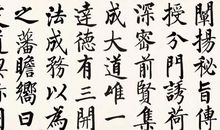 闡揚秘旨傳
授分門誘荷
深密前賢集
成大道唯一
達德有三開
法成務以為
之藩瞻嚮曰